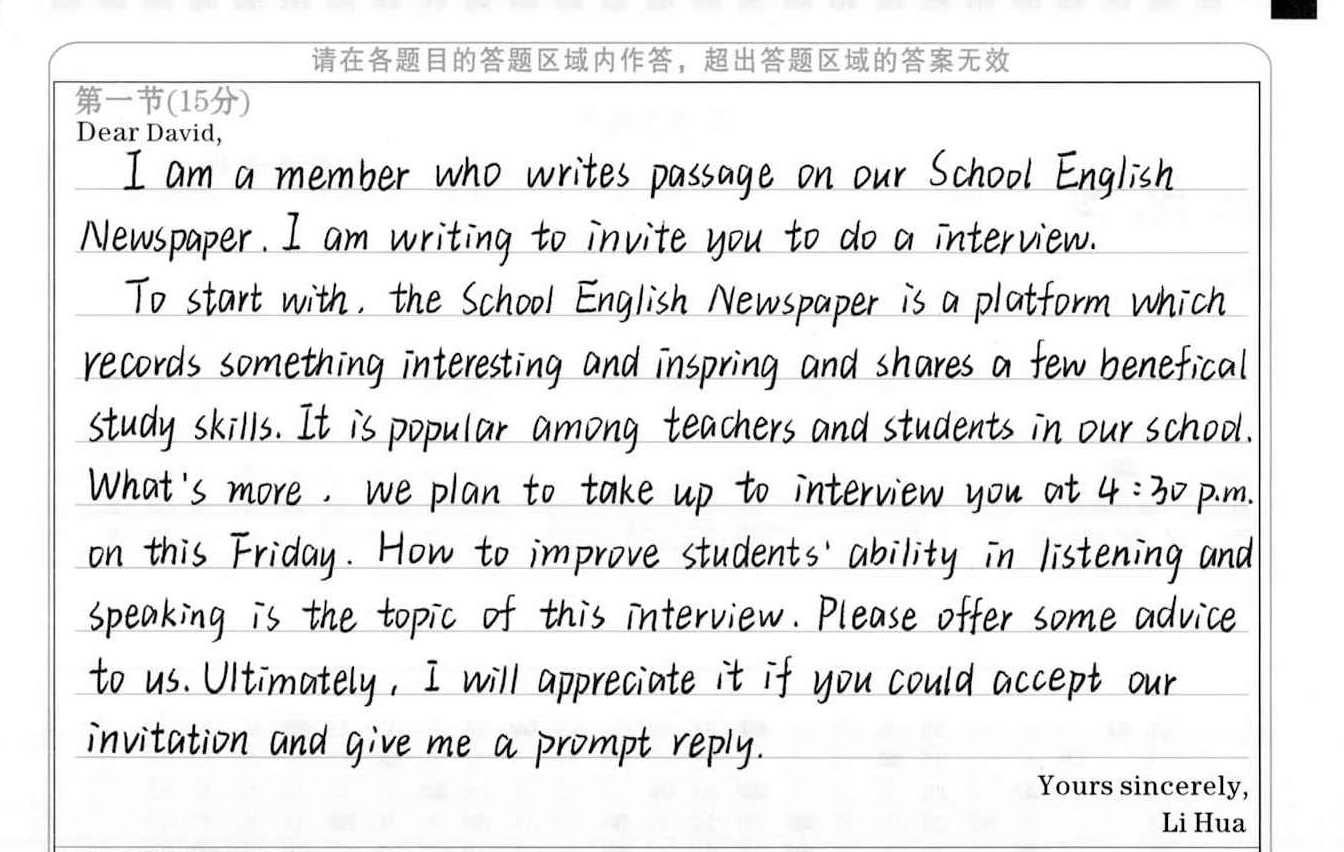 请在各题目的答题区域内作答，超出答题区域的答案无效
第一节(15分)
Dear David,
I am a member who writes passage on our School English
Newspaper. I am writing to invite you to do a interview.
To start with, the School English Newspaper is a platform which
records something interesting and inspring and shares a few benefical
study skills. It is popular among teachers and students in our school.
What's more, we plan to take up to interview you at 4:30 p.m.
on this Friday. How to improve students' ability in listening and
speaking is the topic of this interview. Please offer some advice
to us. Ultimately, I will appreciate it if you could accept our
invitation and give me a prompt reply.
Yours sincerely,
Li Hua